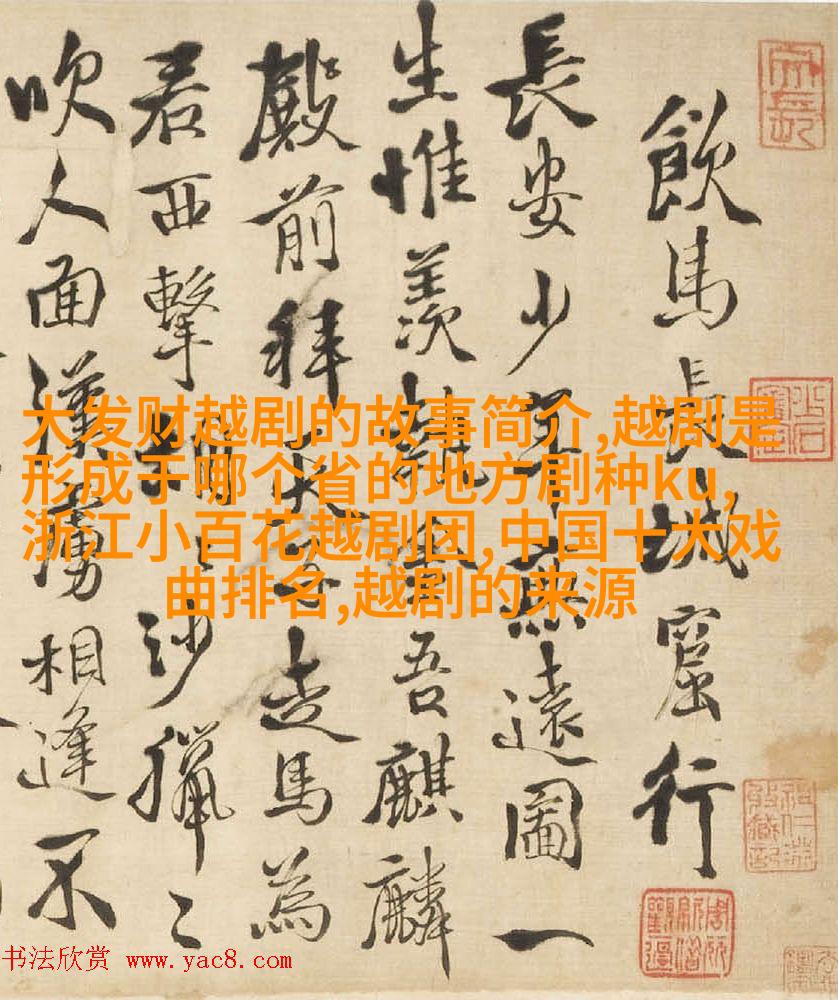 飲馬長城窟行
長安少年無遠圖一
生惟羨執金吾麒麟
殿前拜天子走馬為
君西擊胡〻沙獵〻
吹人面漢虜相逢不
大发财越剧的故事简介,越剧是
形成于哪个省的地方剧种ku,
浙江小百花越剧团,中国十大戏
曲排名,越剧的来源
书法欣赏 www.yac8.com